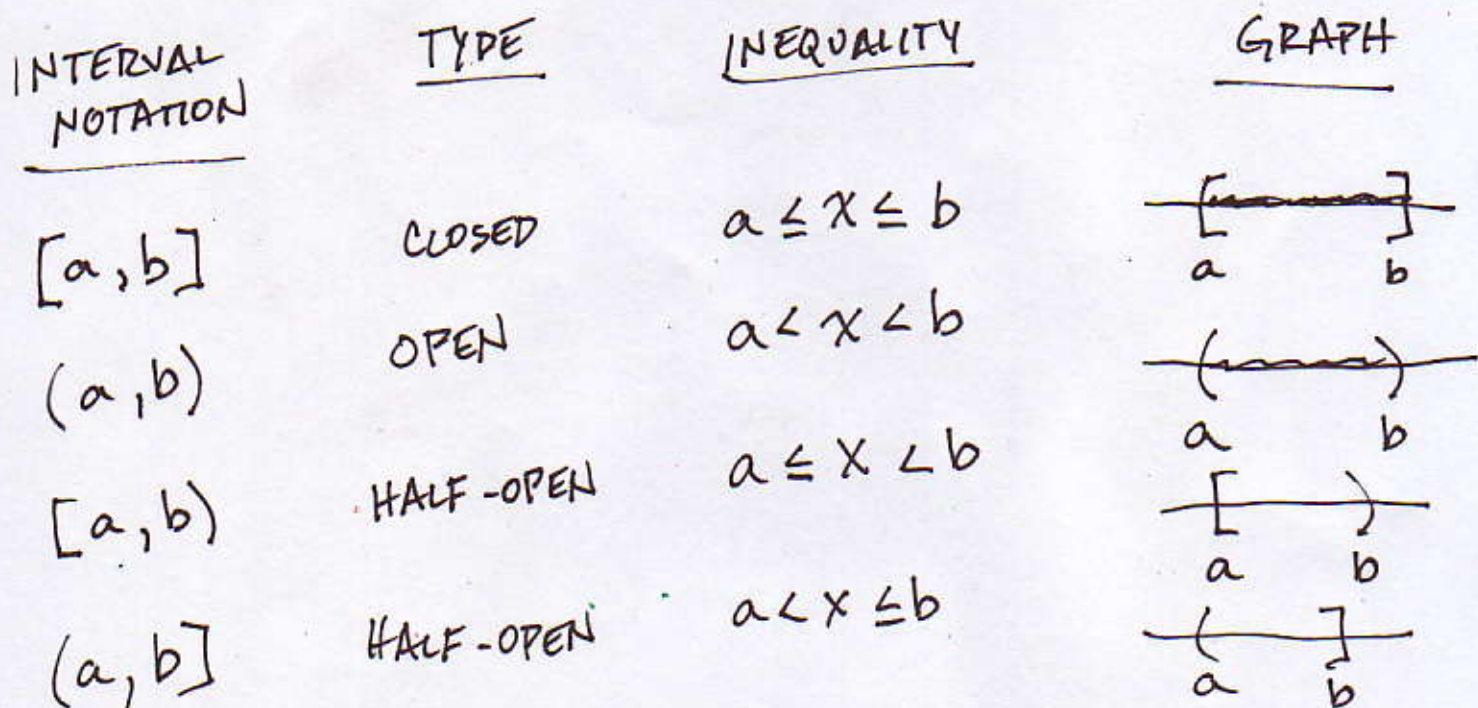 INTERVAL NOTATION TYPE INEQUALITY GRAPH
[a, b] CLOSED a ≤ x ≤ b [ ] a b
(a, b) OPEN a < x < b ( ) a b
[a, b) HALF-OPEN a ≤ x < b [ ) a b
(a, b] HALF-OPEN a < x ≤ b ( ] a b